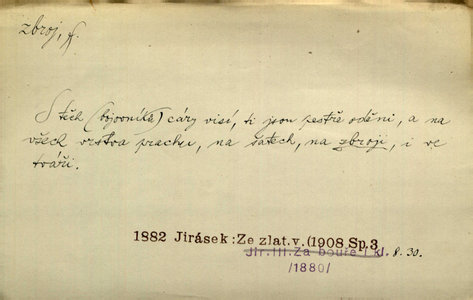 zbroj, f.
S těch (bojovníků) cáry visí, ti jsou pestře oděni, a na
všech vrstva prachu, na šatech, na zbroji, i ve
tváři.
1882 Jirásek: Ze zlat.v. (1908 Sp.3
Jir.III.Za bouře i kl. 8. 30.
/1880/